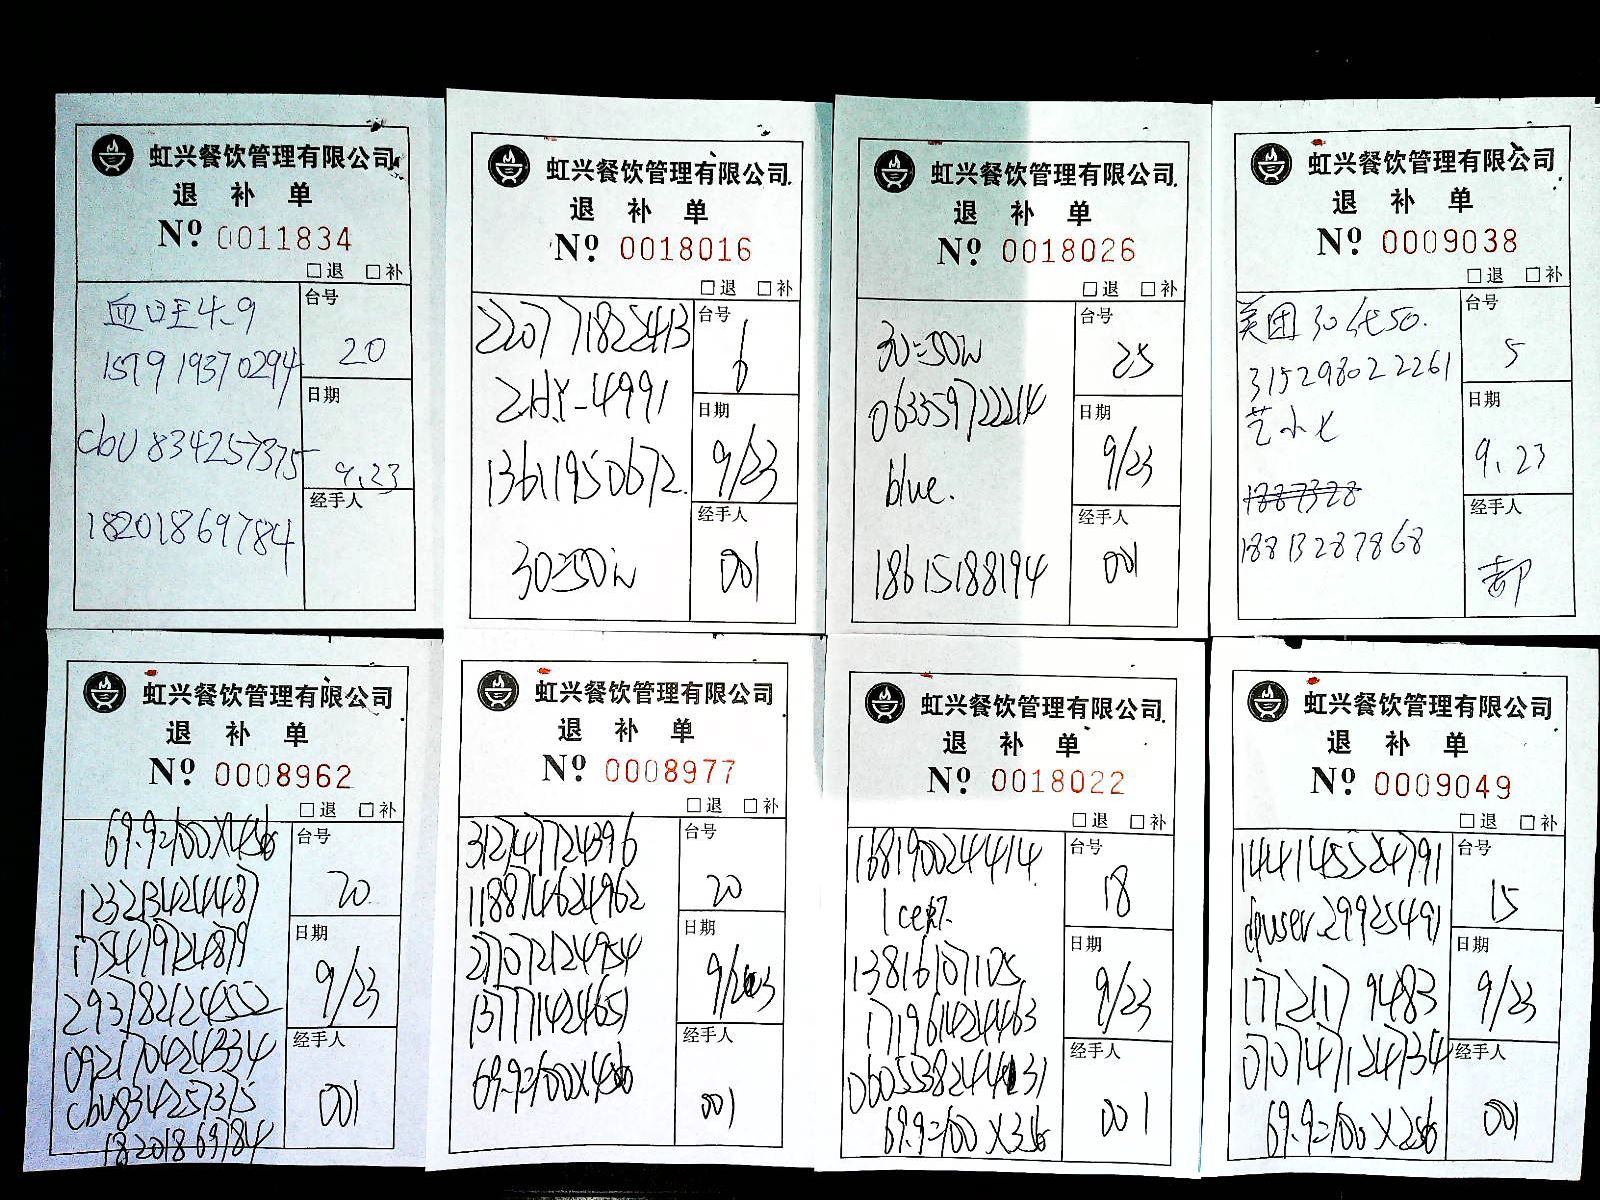 虹兴餐饮管理有限公司
退 补 单
Nº 0011834
□退 □补
血旺4.9
157919370294
cbU834257375
18201869784
台号
20
日期
9.23
经手人
虹兴餐饮管理有限公司
退 补 单
Nº 0018016
□退 □补
220771822413
13611950672
30=50
台号
6
日期
9/23
经手人
001
虹兴餐饮管理有限公司
退 补 单
Nº 0018026
□退 □补
30=50
063359722214
blue.
18615188194
台号
25
日期
9/23
经手人
001
虹兴餐饮管理有限公司
退 补 单
Nº 0009038
□退 □补
美团30代50.
315298022261
艺小七
1887328
18813287868
台号
5
日期
9.23
经手人
郝
虹兴餐饮管理有限公司
退 补 单
Nº 0008962
□退 □补
69.9=100X4
123213424487
175479724879
293782424552
092170424334
cbU834257375
18201869784
台号
20
日期
9/23
经手人
001
虹兴餐饮管理有限公司
退 补 单
Nº 0008977
□退 □补
312747724396
118874624962
271072124954
137771424651
69.9=100X4
台号
20
日期
9/23
经手人
001
虹兴餐饮管理有限公司
退 补 单
Nº 0018022
□退 □补
168190024414
13816107105
171961424463
69.9=100X3
台号
18
日期
9/23
经手人
001
虹兴餐饮管理有限公司
退 补 单
Nº 0009049
□退 □补
144145524791
dpuser_29925491
17721179483
070747124734
69.9=100X2
台号
15
日期
9/23
经手人
001